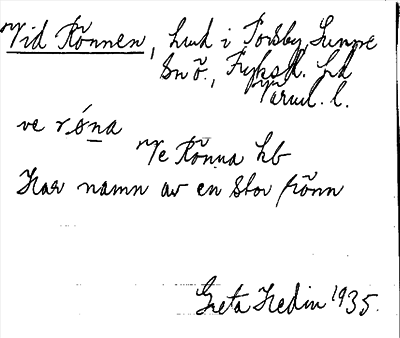 Vid Rönnen, hmd i Torsby, Sunne
sn ö., Fryksd. hd
Värml. l.
ve rǿna
Ve Rönna hb
Har namn av en stor rönn
Greta Hedin 1935.